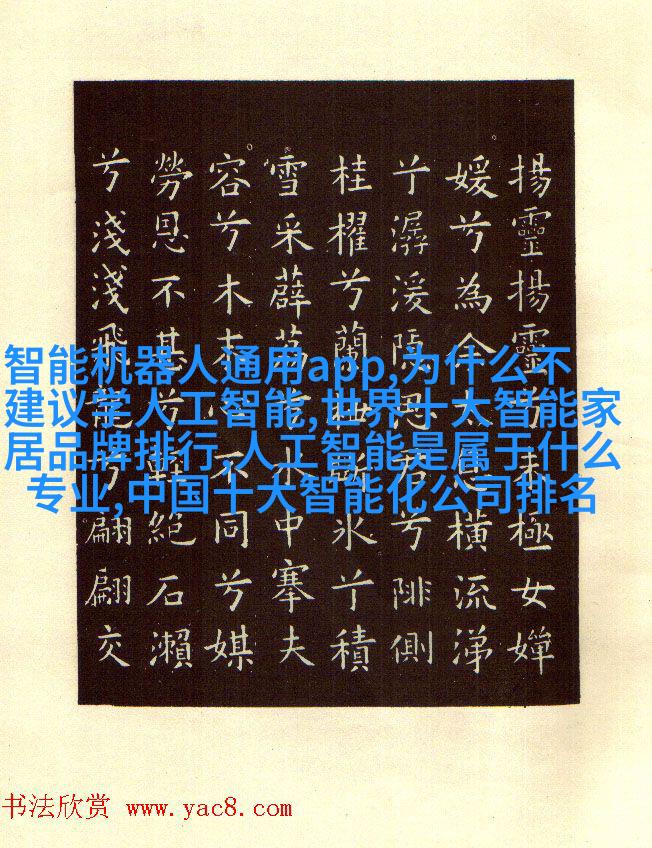 揚靈揚靈兮未極女嬋
媛兮為余太息橫流涕
亍潺湲隱思君兮陫側
桂櫂兮蘭枻斲冰亍積
雪采薜荔水中搴夫
容兮木末心不同兮媒
勞恩不甚兮輕絕石瀨
兮淺淺飛龍兮翩翩交
智能机器人通用app,为什么不
建议学人工智能,世界十大智能家
居品牌排行,人工智能是属于什么
专业,中国十大智能化公司排名
书法欣赏 www.yac8.com